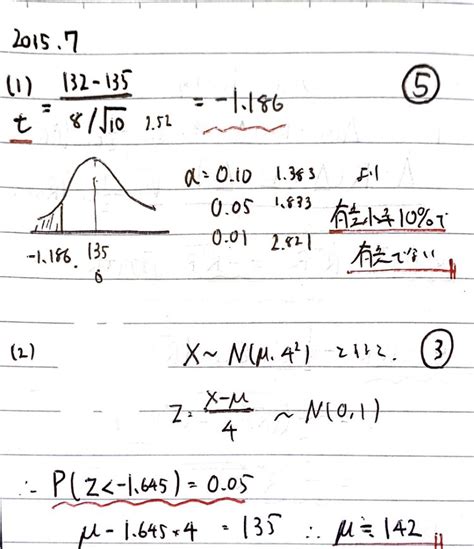 2015.7
(1) t = 132-135 / 8/√10 2.52 = -1.186 ⑤
α=0.10 1.383 より
0.05 1.833 有意水準10%で
0.01 2.821 有意でない
-1.186 135
0
(2) X~N(μ.4²) とすると. ③
Z= X-μ / 4 ~ N(0,1)
∴ P(Z<-1.645)=0.05
μ-1.645×4 = 135 ∴ μ≒142